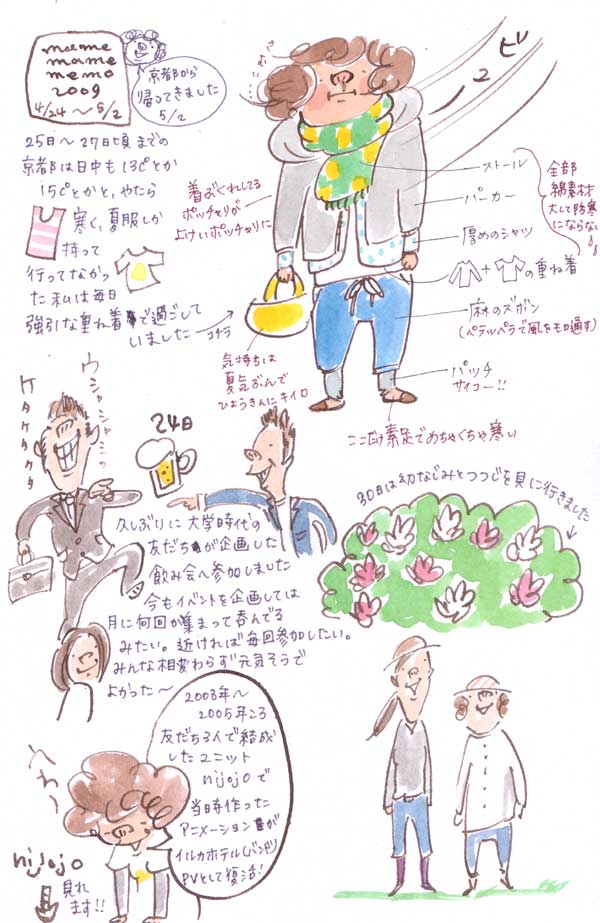 mame
mame
memo
2009
4/24〜5/2
京都から
帰ってきました
5/2
25日〜27日頃までの
京都は日中も13℃とか
15℃とかと、やたら
寒く、夏服しか
持って
行ってなかっ
た私は毎日
強引な重ね着で過ごして
いました→
コチラ
さむい
ビ
ュ
ー
着ぶくれしてる
ポッチャリが
上けいポッチャリに
ストール
パーカー
厚めのシャツ
+ の重ね着
麻のズボン
(ペラッペラで風をモロ通す)
パッチ
サイコー!!
全部
綿素材
大して防寒
にならない
気持ちは
夏気ぶんで
ひょうきんにキイロ
ここだけ素足でめちゃくちゃ寒い
ウシャシャシャッ
ケタケタケタ
24日
久しぶりに大学時代の
友だちが企画した
飲み会へ参加しました
今もイベントを企画しては
月に何回か集まって呑んでる
みたい。近ければ毎回参加したい。
みんな相変わらず元気そうで
よかった〜
30日は幼なじみとつつじを見に行きました
2003年〜
2005年ころ
友だち3人で結成
したユニット
nijojoで
当時作った
アニメーションが
イルカホテル(バンド)
PVとして復活!
へへへ〜
nijojo
見れ
ます!!